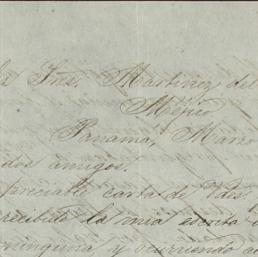 la Sra. Martinez del
Méjico
Panama, Marzo
dos amigos.
apreciable carta de Vdes.
recibido la mia escrita
ninguna y ocurriendo